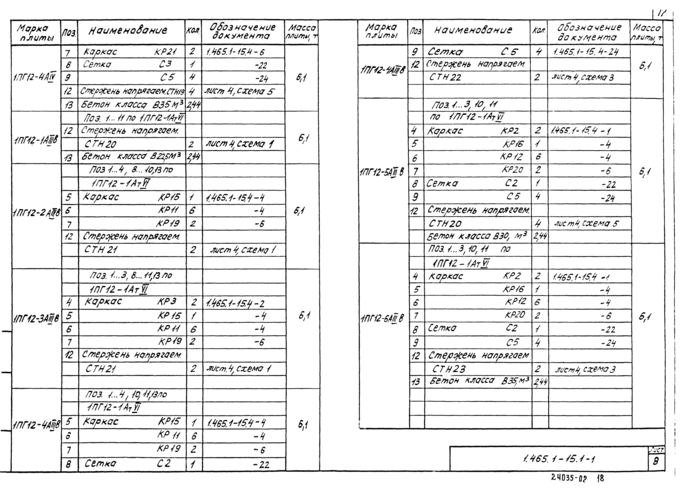 11
Марка плиты Поз. Наименование Кол Обозначение документа Масса плиты, т
7 Каркас КР21 2 1.465.1-15.4-6
8 Сетка С3 1 -22
1ПГ12-4АIV 9 С5 4 -24 6,1
12 Стержень напрягаем. СТН19 4 лист 4, схема 5
13 Бетон класса В35, м³ 2,44
Поз. 1...11 по 1ПГ12-1АтVI
1ПГ12-1АIIIв 12 Стержень напрягаем. 6,1
СТН20 2 лист 4, схема 1
13 Бетон класса В22,5 м³ 2,44
Поз 1...4, 8...10,13 по
1ПГ12-1АтVI
1ПГ12-2АIIIв 5 Каркас КР15 1 1.465.1-15.4-4 6,1
6 КР11 6 -4
7 КР19 2 -6
12 Стержень напрягаем
СТН21 2 лист 4, схема 1
Поз. 1...3, 8...11,13 по
1ПГ12-1АтVI
4 Каркас КР3 2 1.465.1-15.4-2
1ПГ12-3АIIIв 5 КР15 1 -4 6,1
6 КР11 6 -4
7 КР19 2 -6
12 Стержень напрягаем
СТН21 2 лист 4, схема 1
Поз. 1...4, 10,11,13 по
1ПГ12-1АтVI
1ПГ12-4АIIIв 5 Каркас КР15 1 1.465.1-15.4-4 6,1
6 КР11 6 -4
7 КР19 2 -6
8 Сетка С2 1 -22
Марка плиты Поз Наименование Кол Обозначение документа Масса плиты, т
9 Сетка С5 4 1.465.1-15.4-24
1ПГ12-4АIIIв 12 Стержень напрягаем 6,1
СТН22 2 лист 4, схема 3
Поз 1...3, 10, 11
по 1ПГ12-1АтVI
4 Каркас КР2 2 1.465.1-15.4-1
5 КР16 1 -4
6 КР12 6 -4
1ПГ12-5АIIIв 7 КР20 2 -6 6,1
8 Сетка С2 1 -22
9 С5 4 -24
12 Стержень напрягаем
СТН20 4 лист 4, схема 5
Бетон класса В30, м³ 2,44
Поз. 1...3, 10, 11 по
1ПГ12-1АтVI
4 Каркас КР2 2 1.465.1-15.4-1
5 КР16 1 -4
6 КР12 6 -4
1ПГ12-6АIIIв 7 КР20 2 -6 6,1
8 Сетка С2 1 -22
9 С5 4 -24
12 Стержень напрягаем
СТН23 2 лист 4, схема 3
13 Бетон класса В35, м³ 2,44
1.465.1-15.1-1
Лист
8
24035-02 18